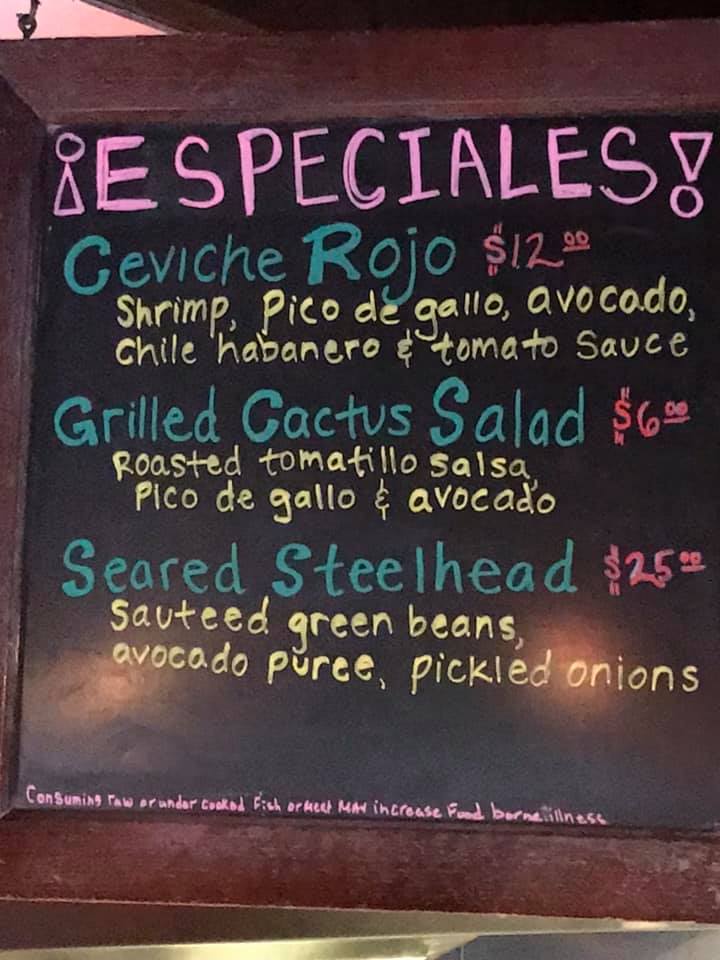 ¡ESPECIALES!
Ceviche Rojo $12.00
Shrimp, Pico de gallo, avocado,
Chile habanero & tomato Sauce
Grilled Cactus Salad $6.00
Roasted tomatillo salsa,
Pico de gallo & avocado
Seared Steelhead $25.00
Sauteed green beans,
avocado puree, pickled onions
Consuming raw or under cooked Fish or Meet MAY increase Food borne illness